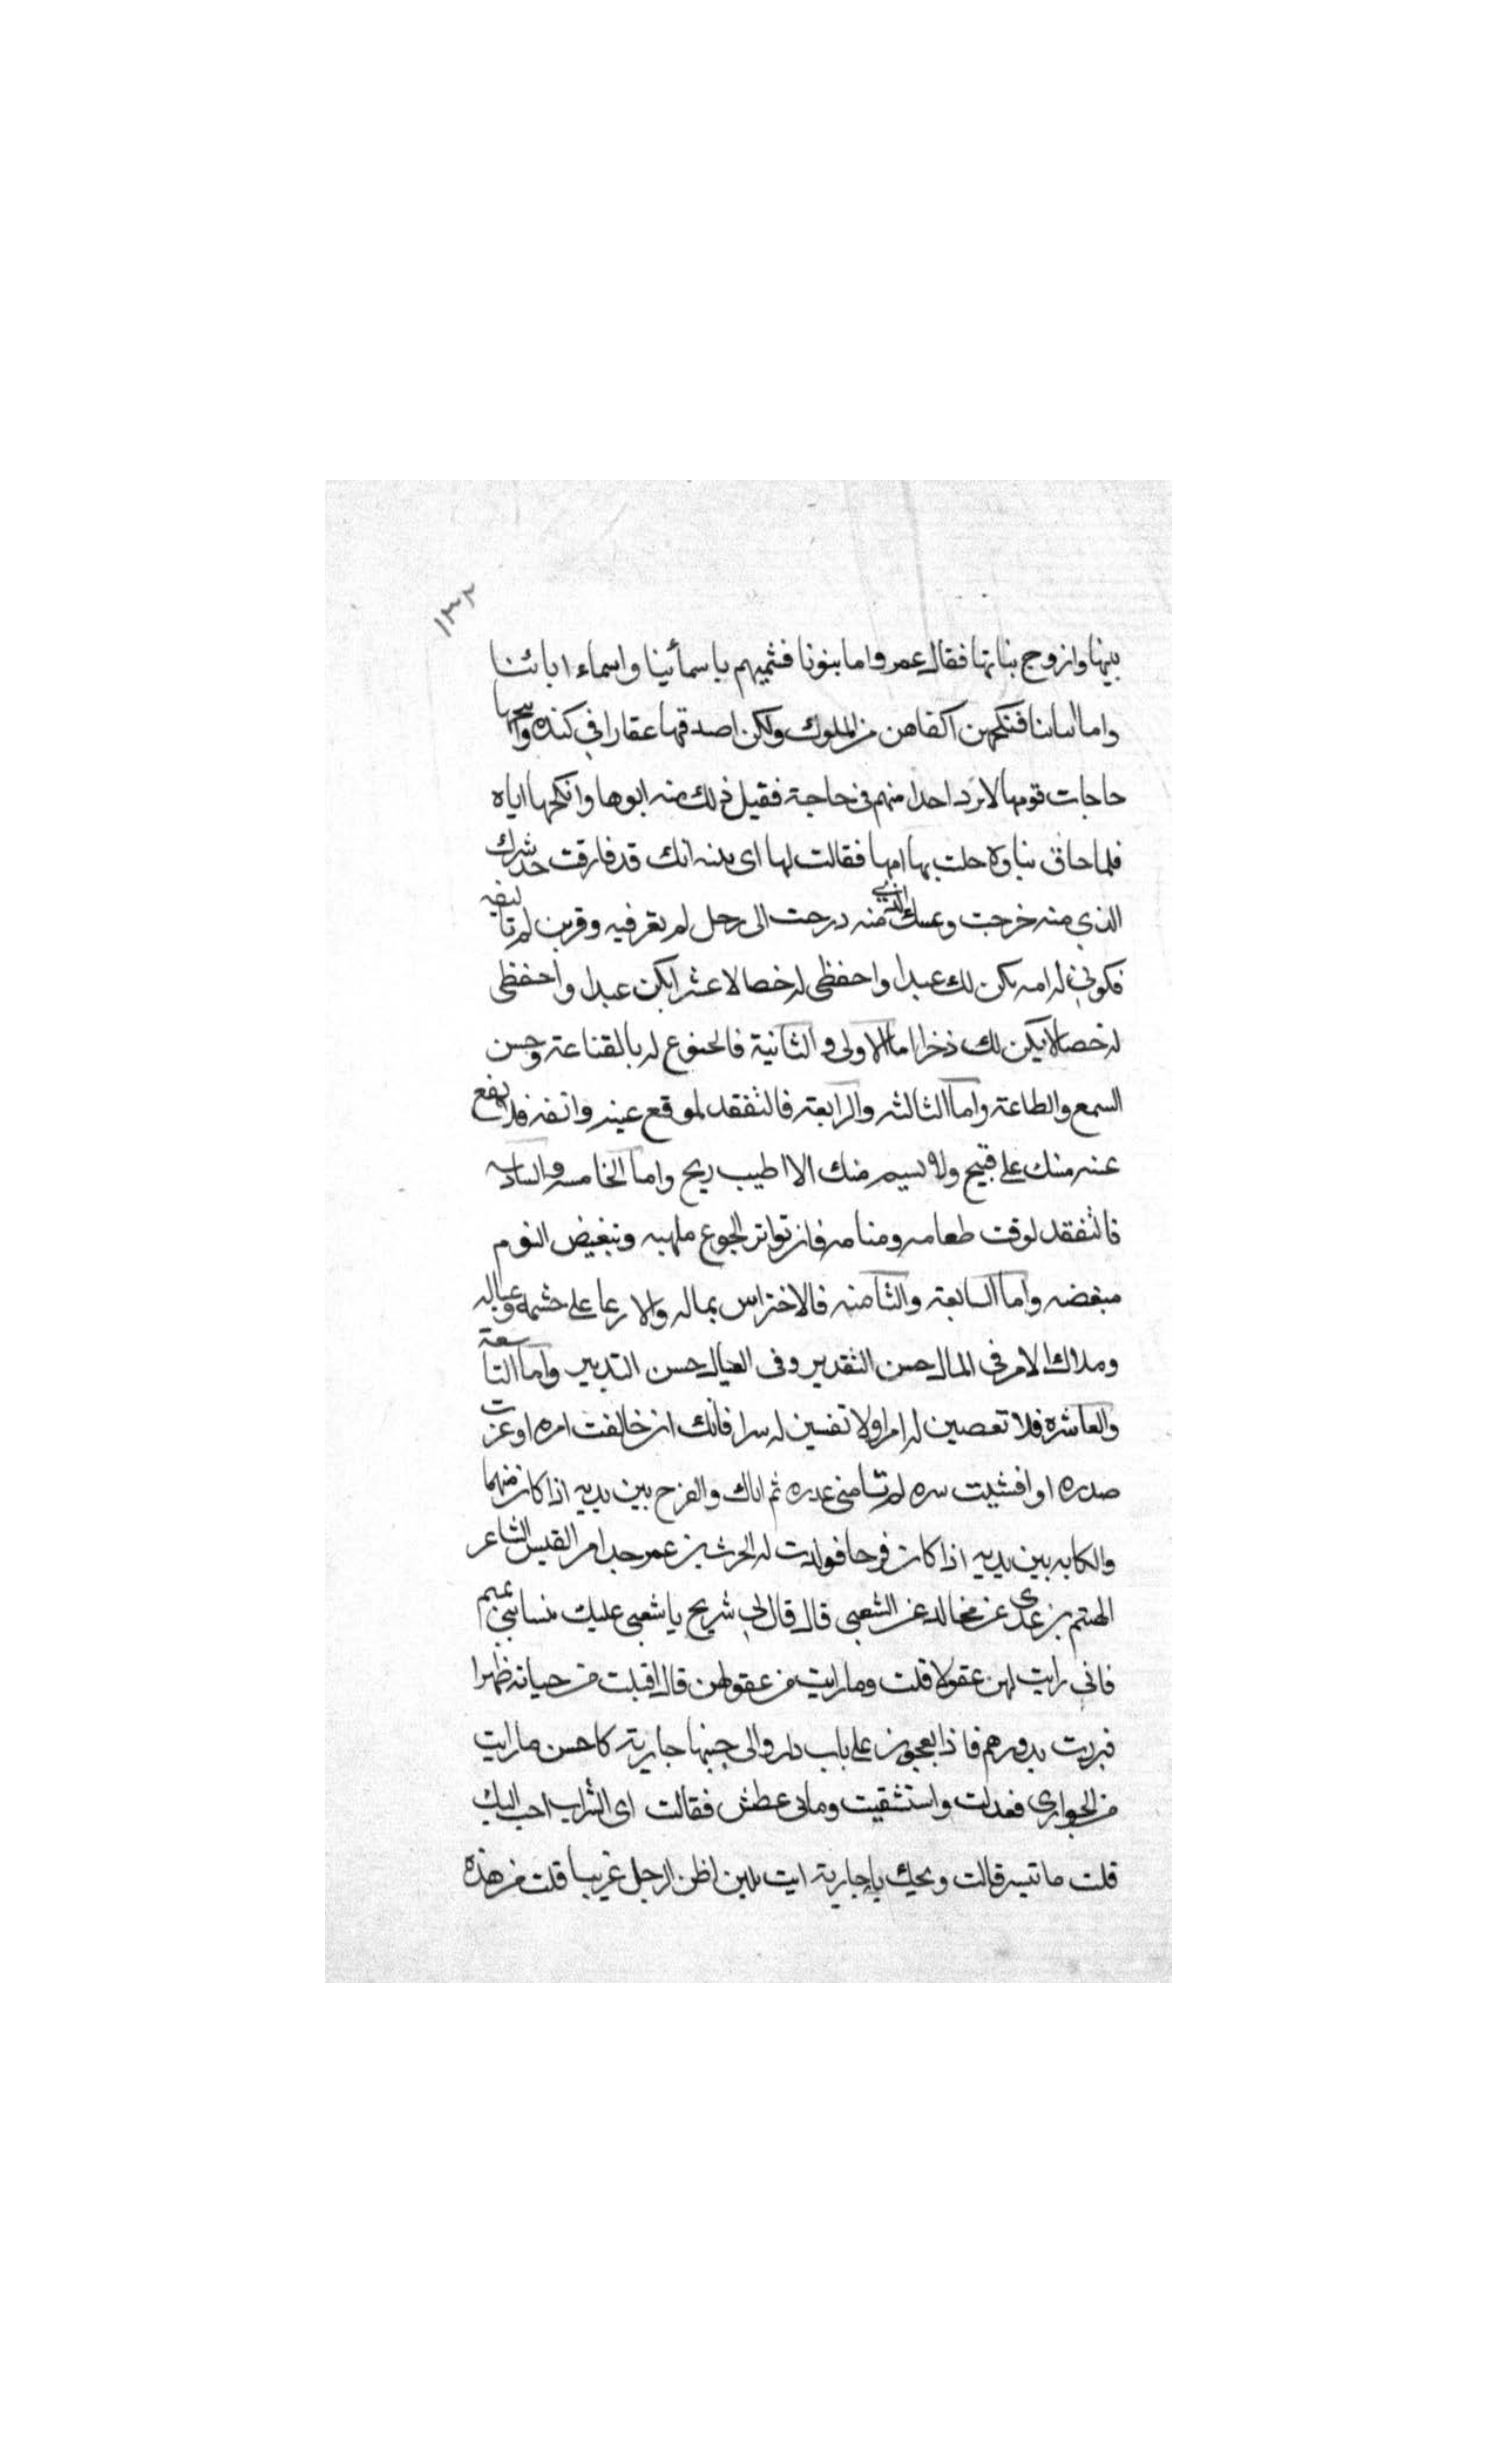 ١٣٢
بينها وازوج بناتها فقال عمرو اما بنونا فنسميهم باسمائينا واسماء ابائنا
واما نساىنا فننكحهن اكفاهن من الملوك ولكن اصدقها عقارا في كنده وامنحها
حاجات قومها لا نرد احدا منهم في حاجة فقبل ذلك منه ابوها وانكحها اياه
فلما حان بناوه خلت بها امها فقالت لها اى بنيه انك قد فارقت
الذي منه خرجت وعشك الذي منه درجت الى رجل لم تعرفيه وقرين لم تالفيه
فكوني له امه يكن لك عبدا واحفظى له خصالا عشرا يكن عبدا واحفظى
له خصالا يكن لك ذخرا اما الاولى والثانية فالخنوع له بالقناعة وحسن
السمع والطاعة واما الثالثه والرابعة فالتفقد لموقع عينه وانفه فلا تقع
عينه منك على قبيح ولا يشم منك الا اطيب ريح واما الخامسه والسادسه
فالتفقد لوقت طعامه ومنامه فان تواتر الجوع ملهبه وتبغيض النوم
مبغضه واما السابعة والثامنه فالاحتراس بماله والارعا على حشمه وعياله
وملاك الامر في المال حسن التقدير وفى العيال حسن التدبير واما التاسعة
والعاشره فلا تعصين له امرا ولا تفشين له سرا فانك ان خالفت امره اوغرت
صدره او افشيت سره لم تامني غدره ثم اياك والفرح بين يديه اذا كان مهتما
والكابه بين يديه اذا كان فرحا فولدت له الحرث بن عمرو جد امرء القيس الشاعر
الهيثم بن عدى عن مجالد عن الشعبي قال قال لي شريح يا شعبي عليك بنسا بني تميم
فاني رايت لهن عقولا قلت وما رايت من عقولهن قال اقبلت من جنازه ظهرا
فمررت بدورهم فاذا بعجوز على باب دار والى جنبها جارية كاحسن ما رايت
من الجوارى فعدلت واستسقيت وما بي عطش فقالت اى الشراب احب اليك
قلت ما تيسر قالت ويحك يا جارية ايت بلبن اظن الرجل غريبا قلت من هذه